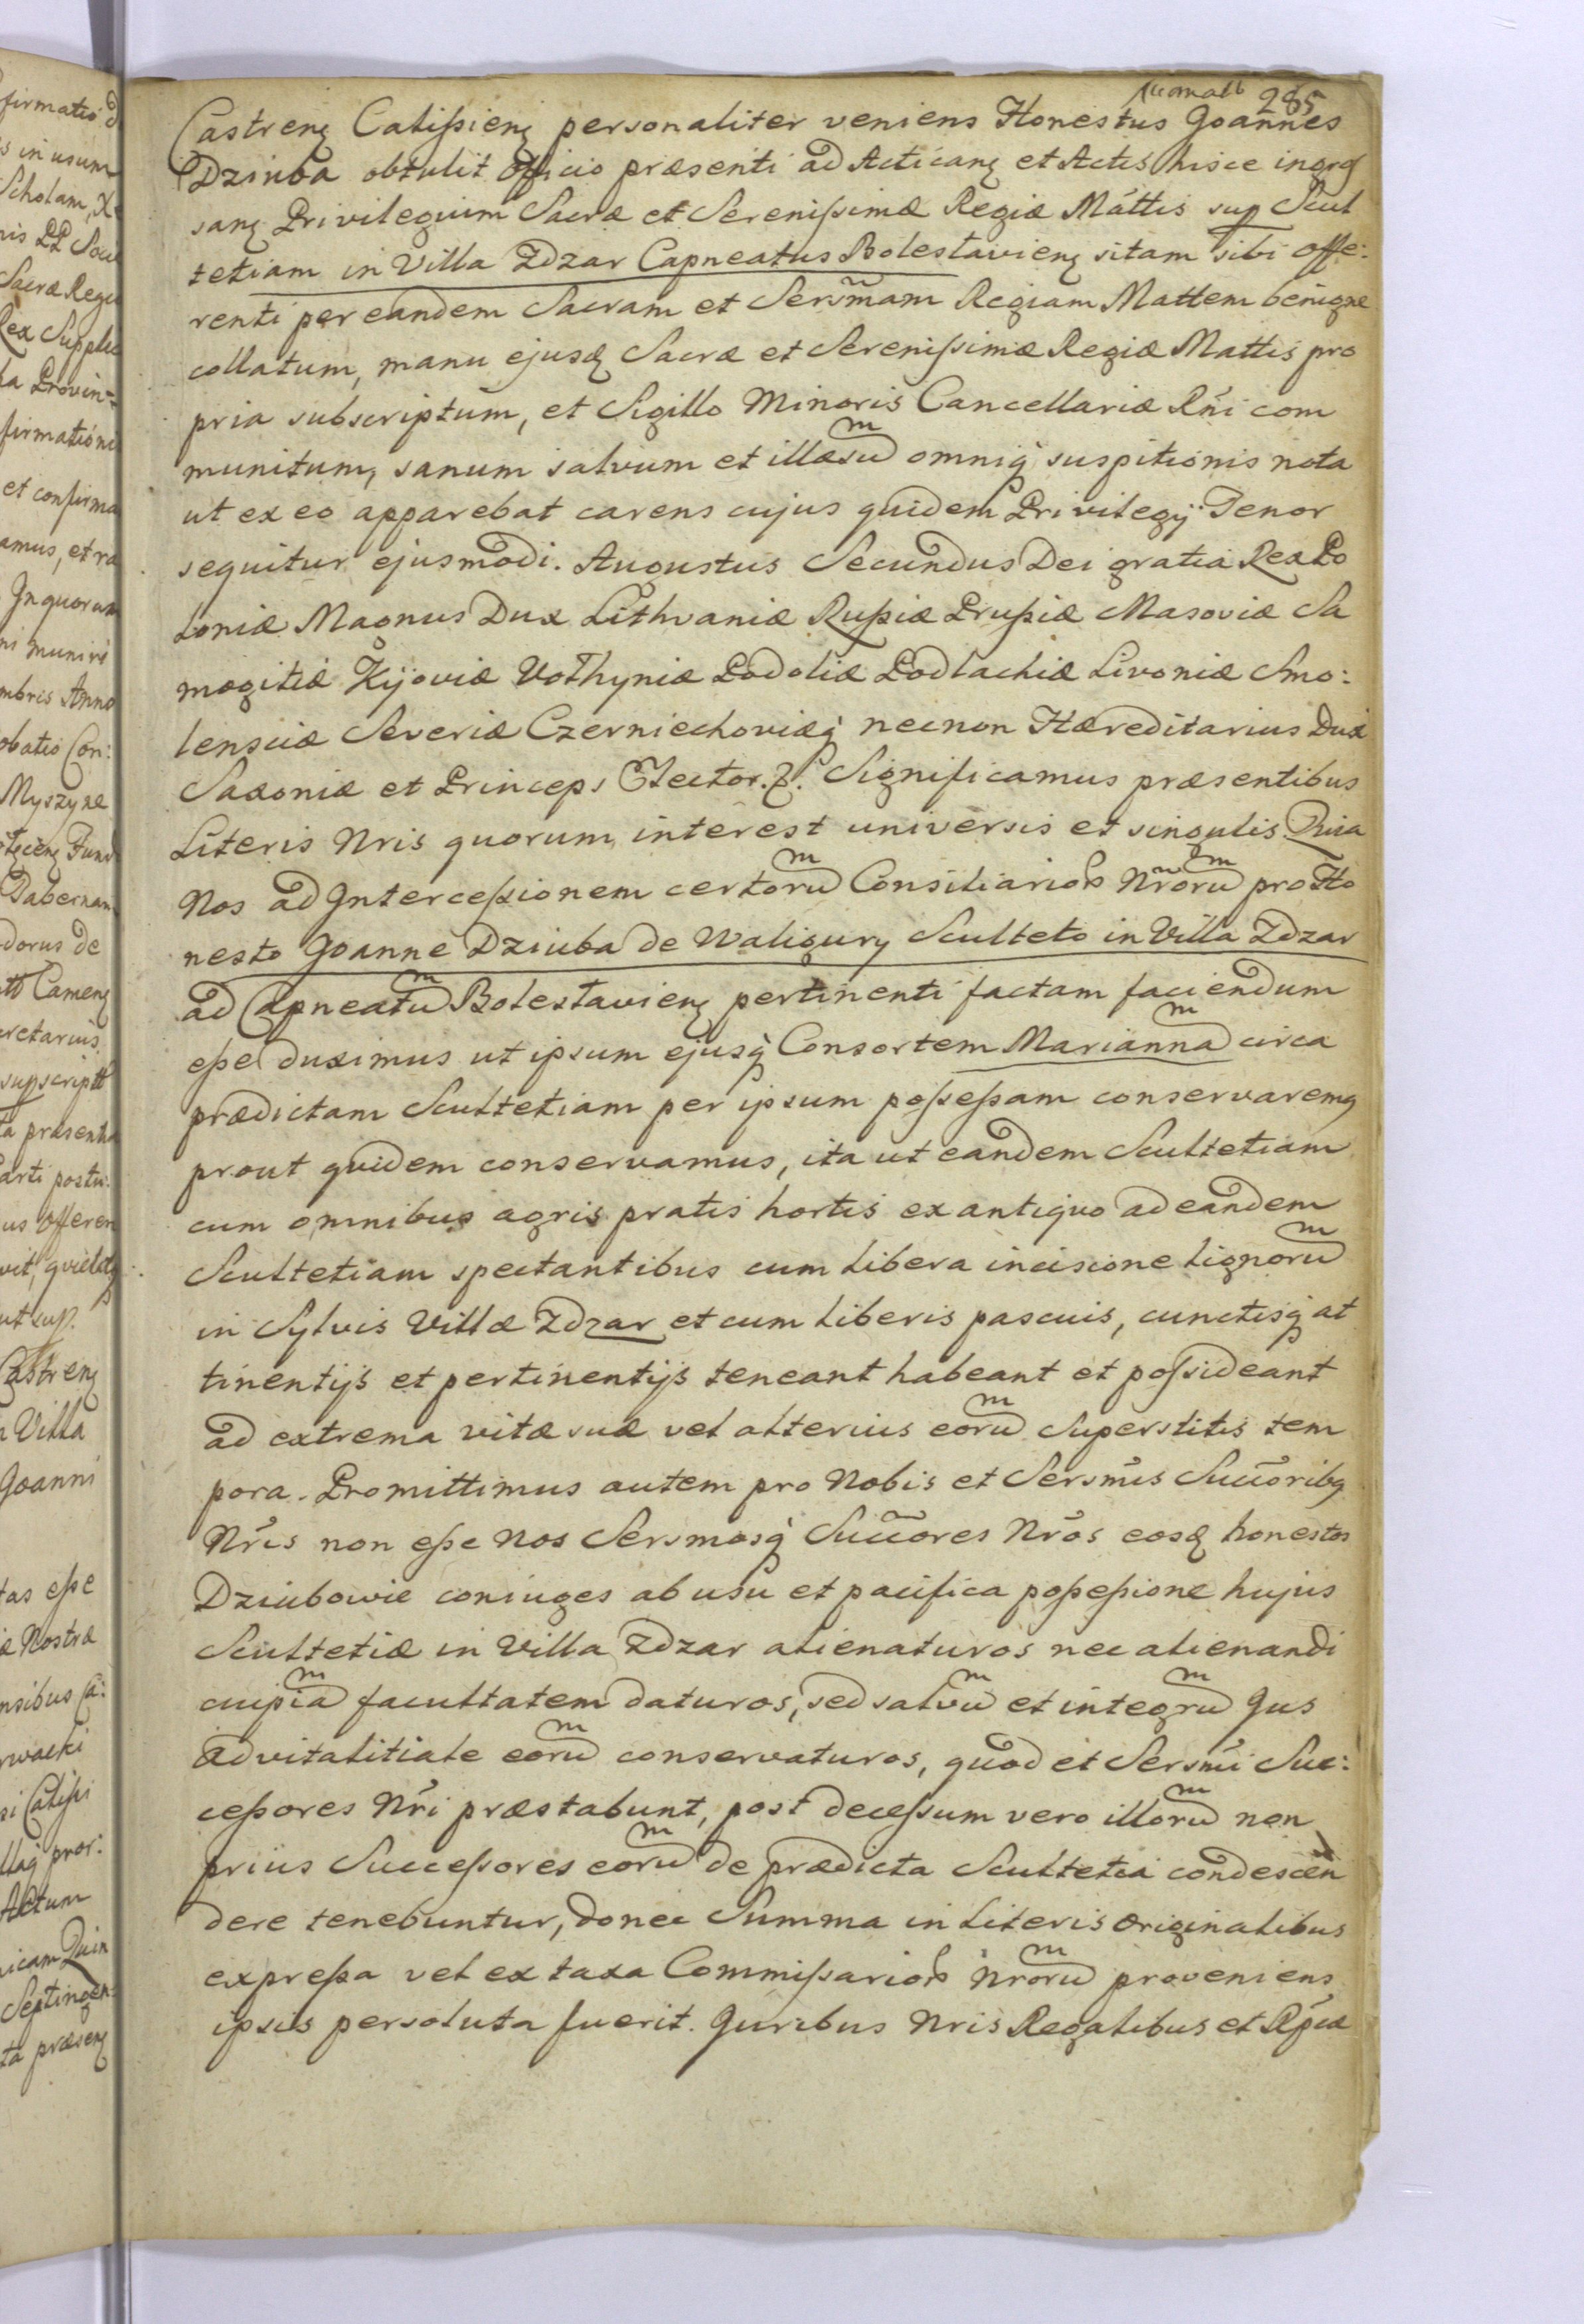 285
Castrenς Calißienς personaliter veniens Honestus Joannes
Dziuba obtulit Officio præsenti ad Acticanς et Actis hisce ingros
sanς Privilegium Sacræ et Serenißimæ Regiæ Mattis sup Scul
tetiam in Villa Zdzar Capneatus Boleslavienς sitam sibi offe:
renti per eandem Sacram et Sersmam Regiam Mattem benigne
collatum, manu ejusq Sacræ et Serenißimæ Regiæ Mattis pro
pria subscriptum, et Sigillo Minoris Cancellariæ Rni com
munitum, sanum salvum et illæsum omniq suspitionis nota
ut ex eo apparebat carens cujus quidem Privilegij Tenor
sequitur ejusmodi. Augustus Secundus Dei gratia Rex Po
loniæ Magnus Dux Lithvaniæ Rußiæ Prußiæ Masoviæ Sa
mogitiæ Kijoviæ Volhyniæ Podoliæ Podlachiæ Livoniæ Smo:
lensciæ Severiæ Czerniechoviæq necnon Hæreditarius Dux
Saxoniæ et Princeps Elector. Significamus præsentibus
Literis Nris quorum interest universis et singulis Quia
Nos ad Interceßionem certorum Consiliarior Nrorum pro Ho
nesto Joanne Dziuba de Waligury Sculteto in Villa Zdzar
ad Capneatum Boleslavienς pertinenti factam faciendum
eße duximus ut ipsum ejusq Consortem Mariannam circa
prædictam Scultetiam per ipsum poßeßam conservaremς
prout quidem conservamus, ita ut eandem Scultetiam
cum omnibus agris pratis hortis ex antiquo ad eandem
Scultetiam spectantibus cum libera incisione lignorum
in Sylvis Villæ Zdzar et cum liberis pascuis, cunctisq at
tinentijs et pertinentijs teneant habeant et poßideant
ad extrema vitæ suæ vel alterius eorum Superstitis tem
pora. Promittimus autem pro Nobis et Sersmis Succoribς
Nris non eße Nos Sersmosq Succores Nros eosq honestos
Dziubowie coniuges ab usu et pacifica poßeßione hujus
Scultetiæ in Villa Zdzar alienaturos nec alienandi
cuipiam facultatem daturos, sed salvum et integrum Jus
advitalitiale eorum conservaturos, quod et Sersmi Suc:
ceßores Nri præstabunt, post deceßum vero illorum non
prius Succeßores eorum de prædicta Scultetia condescen
dere tenebuntur, donec Summa in Literis Originalibus
expreßa vel ex taxa Commißarior Nrorum proveniens
ipsis persoluta fuerit. Juribus Nris Regalibus et Rpcæ